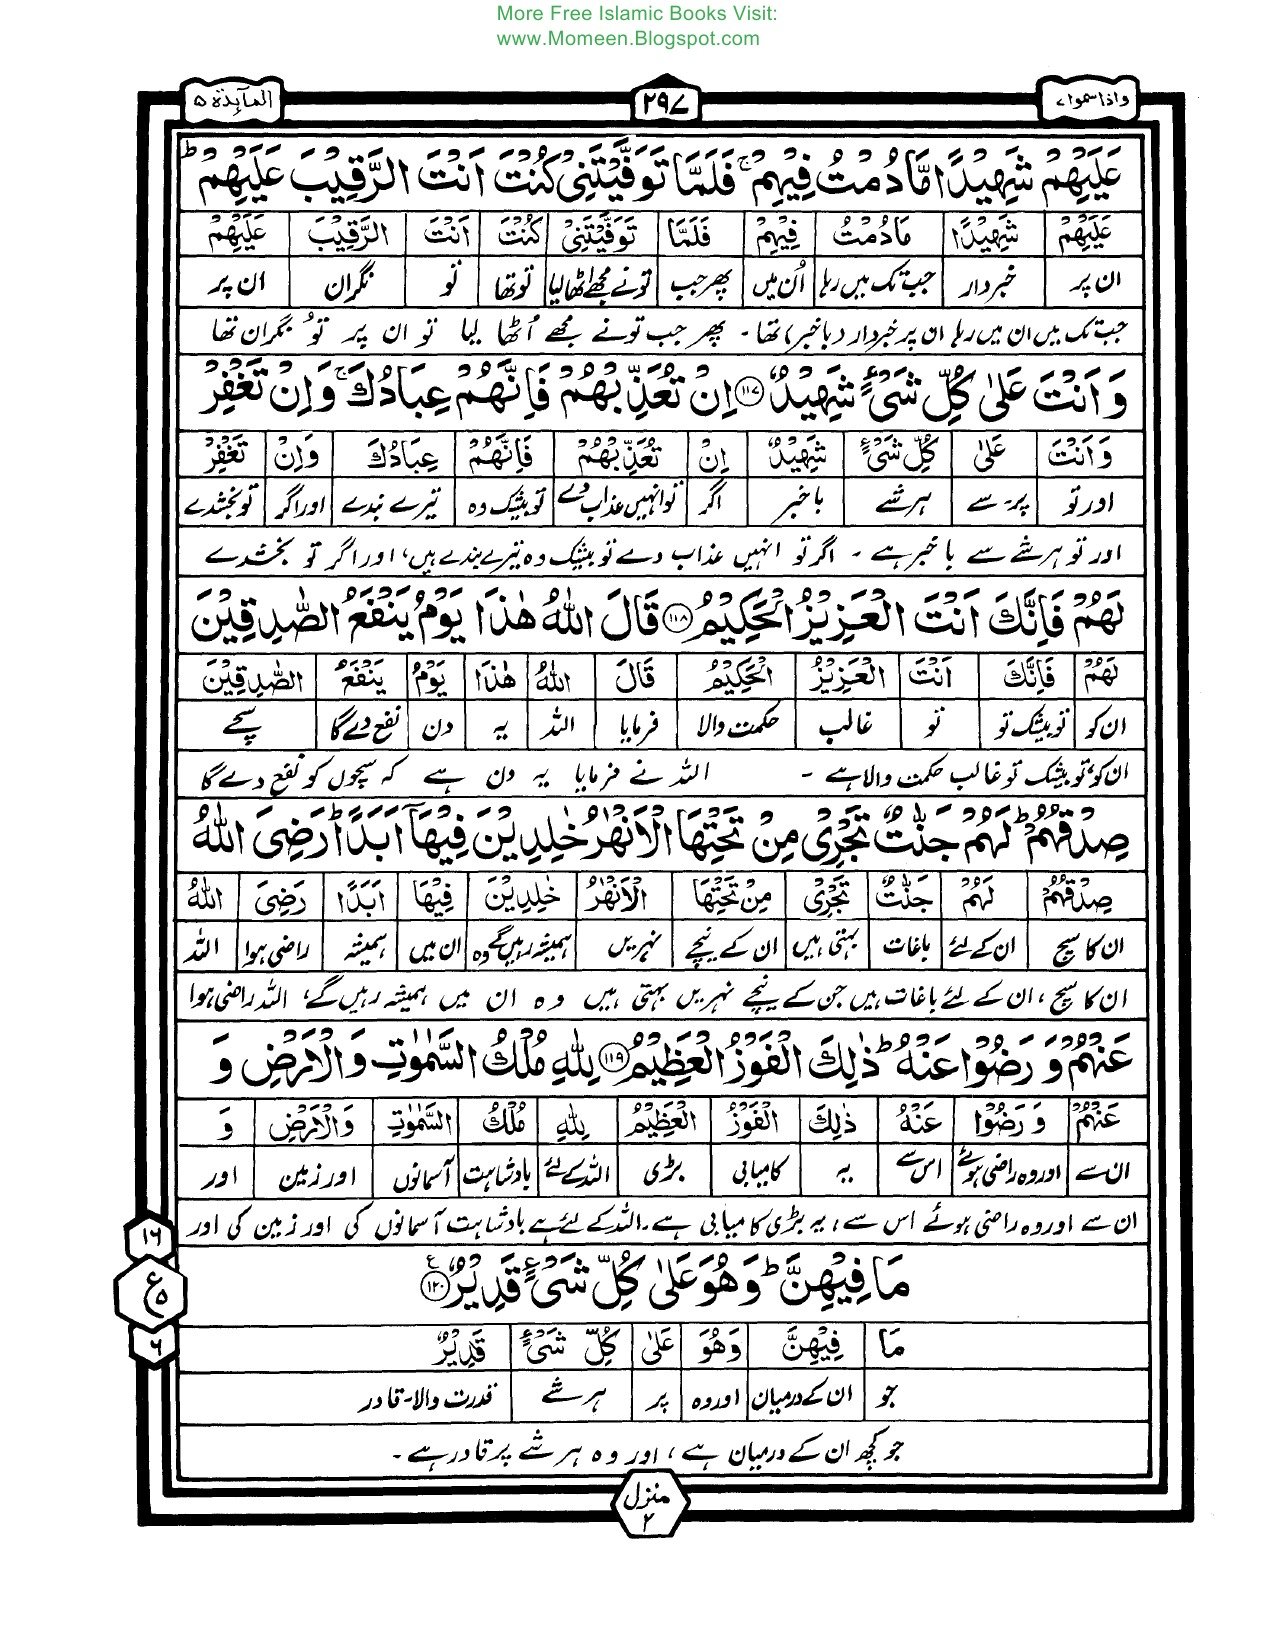 More Free Islamic Books Visit:
www.Momeen.Blogspot.com
واذاسمعوا ۷
۲۹۷
المآىِٕدة ۵
عَلَیْهِمْ شَهِیْدًا مَّا دُمْتُ فِیْهِمْ ۚ فَلَمَّا تَوَفَّیْتَنِیْ كُنْتَ اَنْتَ الرَّقِیْبَ عَلَیْهِمْ ؕ
عَلَیْهِمْ شَهِیْدًا مَا دُمْتُ فِیْهِمْ فَلَمَّا تَوَفَّیْتَنِیْ كُنْتَ اَنْتَ الرَّقِیْبَ عَلَیْهِمْ
ان پر خبردار جب تک میں رہا اُن میں پھر جب تونے مجھے اٹھا لیا تو تھا تو نگران ان پر
جب تک میں ان میں رہا ان پر خبردار (باخبر) تھا۔ پھر جب تو نے مجھے اُٹھا لیا تو ان پر تُو نگران تھا
وَ اَنْتَ عَلٰی كُلِّ شَیْءٍ شَهِیْدٌ ۝۱۱۷ اِنْ تُعَذِّبْهُمْ فَاِنَّهُمْ عِبَادُكَ ۚ وَ اِنْ تَغْفِرْ
وَ اَنْتَ عَلٰی كُلِّ شَیْءٍ شَهِیْدٌ اِنْ تُعَذِّبْهُمْ فَاِنَّهُمْ عِبَادُكَ وَاِنْ تَغْفِرْ
اور تو پر۔سے ہر شے باخبر اگر تو انہیں عذاب دے تو بیشک وہ تیرے بندے اور اگر تو بخشدے
اور تو ہر شے سے با خبر ہے ۔ اگر تو انہیں عذاب دے تو بیشک وہ تیرے بندے ہیں، اور اگر تو بخشدے
لَهُمْ فَاِنَّكَ اَنْتَ الْعَزِیْزُ الْحَكِیْمُ ۝۱۱۸ قَالَ اللّٰهُ هٰذَا یَوْمُ یَنْفَعُ الصّٰدِقِیْنَ
لَهُمْ فَاِنَّكَ اَنْتَ الْعَزِیْزُ الْحَكِیْمُ قَالَ اللّٰهُ هٰذَا یَوْمُ یَنْفَعُ الصّٰدِقِیْنَ
ان کو تو بیشک تو تو غالب حکمت والا فرمایا اللہ یہ دن نفع دے گا سچے
ان کو، تو بیشک تو غالب حکمت والا ہے ۔ اللہ نے فرمایا یہ دن ہے کہ سچوں کو نفع دے گا
صِدْقُهُمْ ؕ لَهُمْ جَنّٰتٌ تَجْرِیْ مِنْ تَحْتِهَا الْاَنْهٰرُ خٰلِدِیْنَ فِیْهَاۤ اَبَدًا ؕ رَضِیَ اللّٰهُ
صِدْقُهُمْ لَهُمْ جَنّٰتٌ تَجْرِیْ مِنْ تَحْتِهَا الْاَنْهٰرُ خٰلِدِیْنَ فِیْهَا اَبَدًا رَضِیَ اللّٰهُ
ان کا سچ ان کے لئے باغات بہتی ہیں ان کے نیچے نہریں ہمیشہ رہیں گے وہ ان میں ہمیشہ راضی ہوا اللہ
ان کا سچ، ان کے لئے باغات ہیں جن کے نیچے نہریں بہتی ہیں وہ ان میں ہمیشہ رہیں گے، اللہ راضی ہوا
عَنْهُمْ وَ رَضُوْا عَنْهُ ؕ ذٰلِكَ الْفَوْزُ الْعَظِیْمُ ۝۱۱۹ لِلّٰهِ مُلْكُ السَّمٰوٰتِ وَ الْاَرْضِ وَ
عَنْهُمْ وَ رَضُوْا عَنْهُ ذٰلِكَ الْفَوْزُ الْعَظِیْمُ لِلّٰهِ مُلْكُ السَّمٰوٰتِ وَالْاَرْضِ وَ
ان سے اور وہ راضی ہوئے اس سے یہ کامیابی بڑی اللہ کے لئے بادشاہت آسمانوں اور زمین اور
ان سے اور وہ راضی ہوئے اس سے، یہ بڑی کامیابی ہے۔ اللہ کے لئے ہے بادشاہت آسمانوں کی اور زمین کی اور
مَا فِیْهِنَّ ؕ وَ هُوَ عَلٰی كُلِّ شَیْءٍ قَدِیْرٌ ۝۱۲۰
مَا فِیْهِنَّ وَهُوَ عَلٰی كُلِّ شَیْءٍ قَدِیْرٌ
جو ان کے درمیان اور وہ پر ہر شے قدرت والا۔قادر
جو کچھ ان کے درمیان ہے، اور وہ ہر شے پر قادر ہے ۔
۱۶
ع ۵
۶
منزل ۲